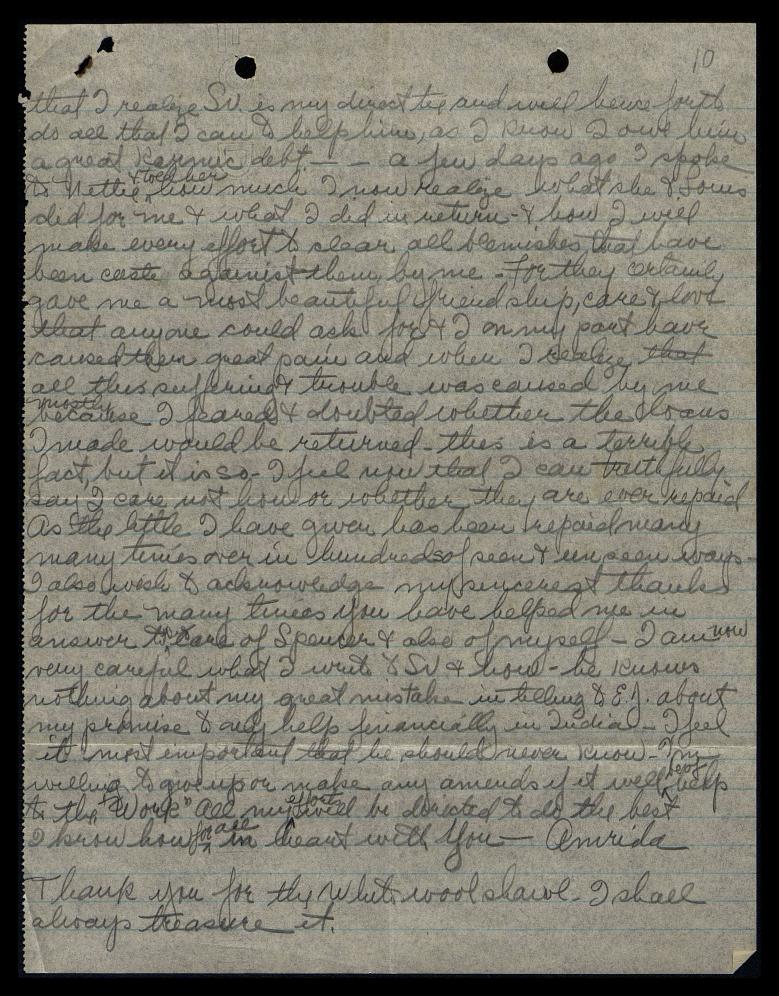 10
that I realize S.V. is my direct tie and will hence forth
do all that I can to help him, as I know I owe him
a great Karmic debt — — a few days ago I spoke
to Nettie & told her how much I now realize what she & Louis
did for me & what I did in return - & how I will
make every effort to clear all blemishes that have
been caste against them by me - For they certainly
gave me a most beautiful friendship, care & love
that anyone could ask for & I on my part have
caused them great pain and when I realize that
all this suffering & trouble was caused by me
mostly because I feared & doubted whether the loans
I made would be returned - this is a terrible
fact, but it is so - I feel now that I can truthfully
say I care not how or whether they are ever repaid
As the little I have given has been repaid many
many times over in hundreds of seen & unseen ways -
I also wish to acknowledge my sincerest thanks
for the many times you have helped me in
answer to care of Spencer & also of myself - I am now
very careful what I write to SV & how - he knows
nothing about my great mistake in telling to E.J. about
my promise to only help financially in India - I feel
it most important that he should never know - I'm
willing to give up or make any amends if it will help
to the "Work" All my efforts will be directed to do the best
I know how for all in heart with You — Amrida
Thank you for the White wool shawl - I shall
always treasure it.